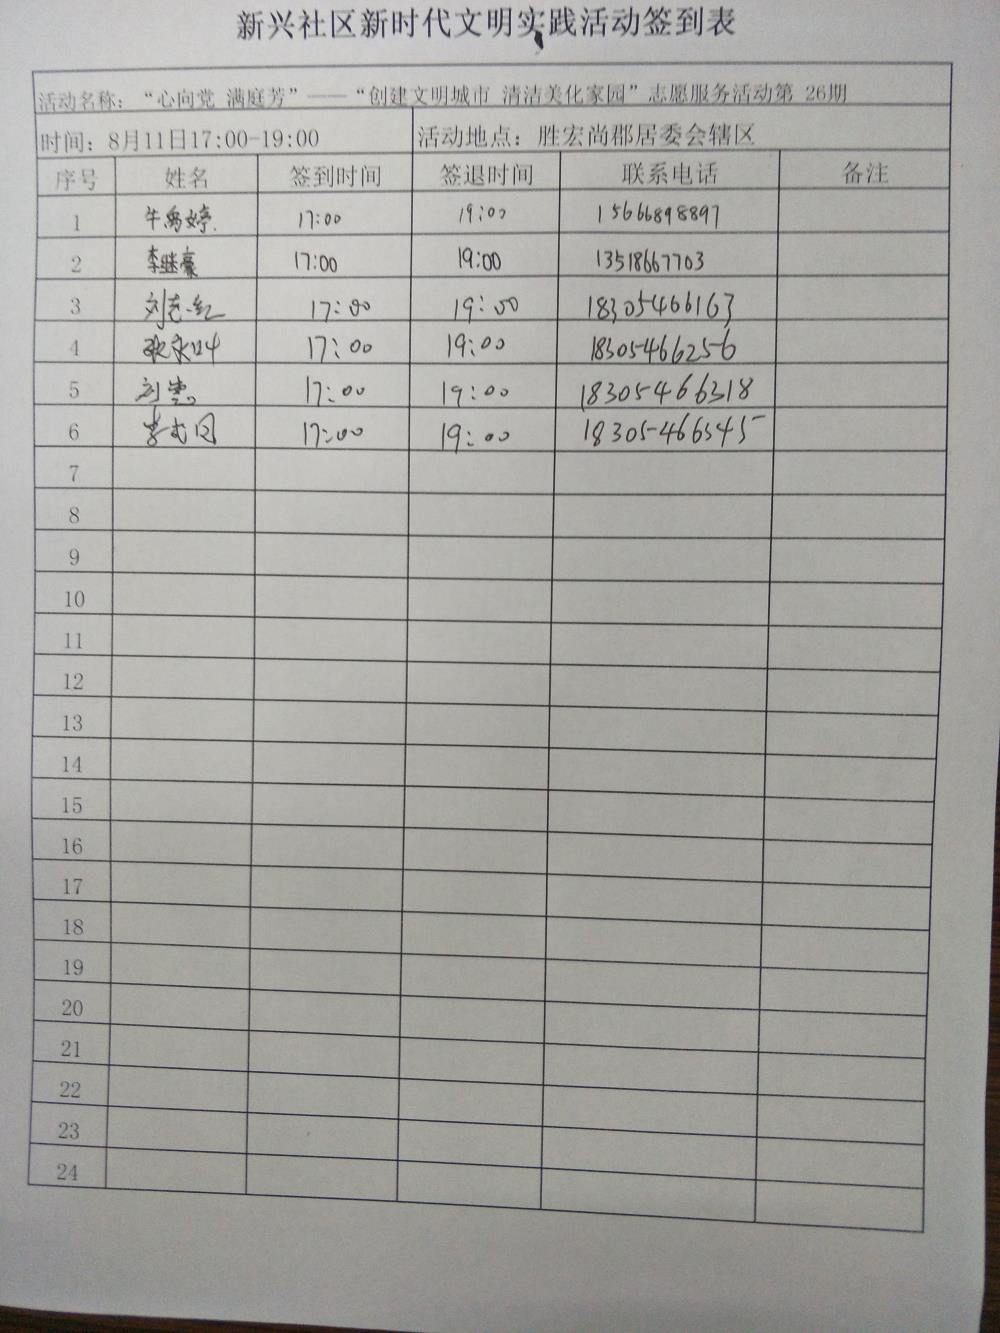 新兴社区新时代文明实践活动签到表
活动名称：“心向党 满庭芳”——“创建文明城市 清洁美化家园”志愿服务活动第 26期
时间：8月11日17:00-19:00 活动地点：胜宏尚郡居委会辖区
序号 姓名 签到时间 签退时间 联系电话 备注
1 牛禹婷 17:00 19:00 15666898897
2 李继豪 17:00 19:00 13518667703
3 17:00 19:00 18305466163
4 17:00 19:00 18305466256
5 17:00 19:00 18305466318
6 17:00 19:00 18305466545
7
8
9
10
11
12
13
14
15
16
17
18
19
20
21
22
23
24